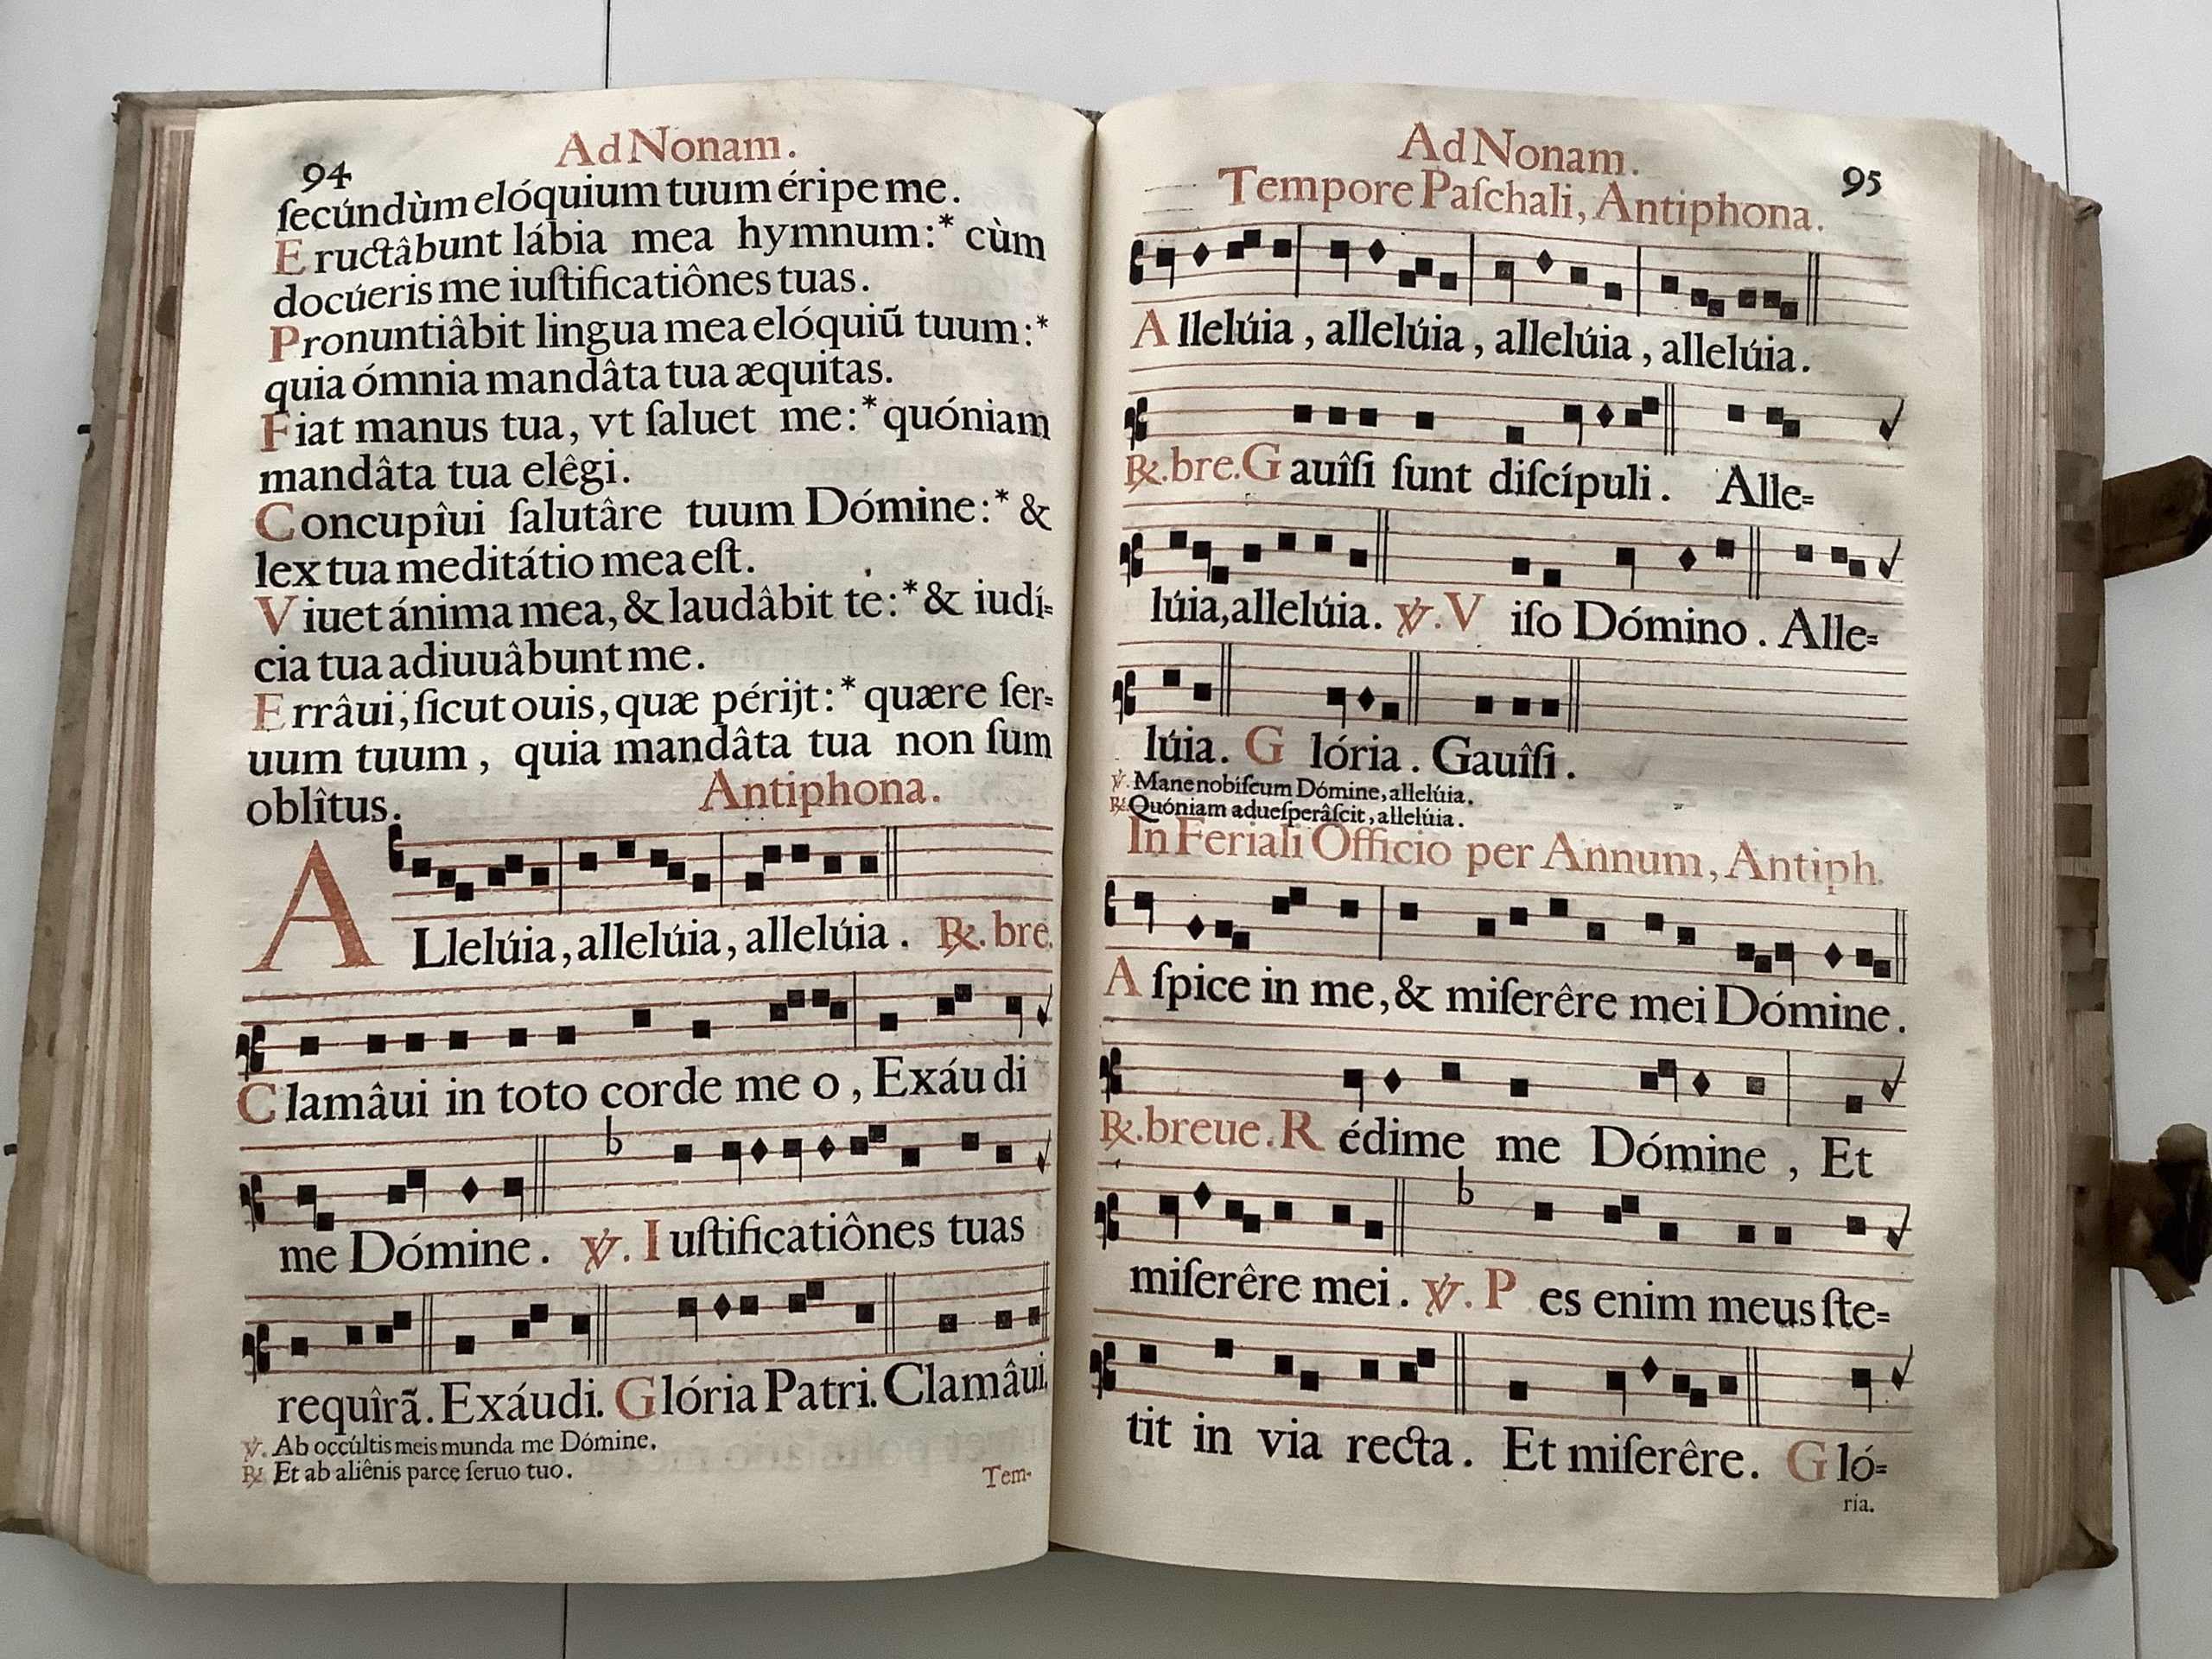 Ad Nonam.
94
ſecúndùm elóquium tuum éripe me.
Eructâbunt lábia mea hymnum:* cùm
docúeris me iuſtificatiônes tuas.
Pronuntiâbit lingua mea elóquiũ tuum:*
quia ómnia mandâta tua æquitas.
Fiat manus tua, vt ſaluet me:* quóniam
mandâta tua elêgi.
Concupîui ſalutâre tuum Dómine:* &
lex tua meditátio mea eſt.
Viuet ánima mea, & laudâbit te:* & iudí=
cia tua adiuuâbunt me.
Errâui, ſicut ouis, quæ périjt:* quære ſer=
uum tuum, quia mandâta tua non ſum
oblîtus. Antiphona.
ALlelúia, allelúia, allelúia. ℟. bre.
Clamâui in toto corde me o, Exáu di
me Dómine. ℣. Iuſtificatiônes tuas
requîrã. Exáudi. Glória Patri. Clamâui.
℣. Ab occúltis meis munda me Dómine.
℟. Et ab aliênis parce ſeruo tuo.
Tem-
Ad Nonam.
95
Tempore Paſchali, Antiphona.
Allelúia, allelúia, allelúia, allelúia.
℟.bre. Gauîſi ſunt diſcípuli. Alle=
lúia, allelúia. ℣. Viſo Dómino. Alle=
lúia. Glória. Gauîſi.
℣. Mane nobíſcum Dómine, allelúia.
℟. Quóniam adueſperâſcit, allelúia.
In Feriali Officio per Annum, Antiph.
Aſpice in me, & miſerêre mei Dómine.
℟.breue. Rédime me Dómine, Et
miſerêre mei. ℣. Pes enim meus ſte=
tit in via recta. Et miſerêre. Gló=
ria.